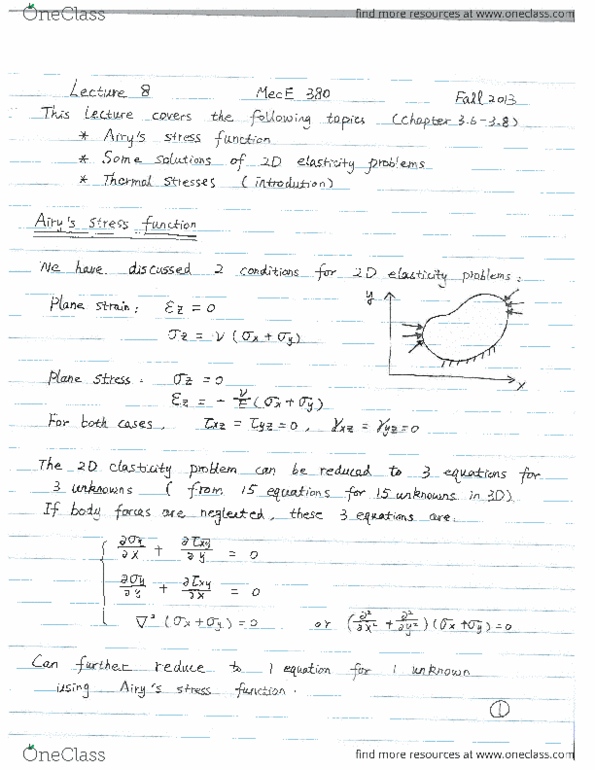 OneClass
find more resources at www.oneclass.com
Lecture 8 MecE 380 Fall 2013
This lecture covers the following topics (Chapter 3.6-3.8)
* Airy's stress function
* Some solutions of 2D elasticity problems
* Thermal stresses (introdution)
Airy's stress function
We have discussed 2 conditions for 2D elasticity problems:
Plane strain: εz = 0
σz = ν (σx + σy)
y
x
Plane stress: σz = 0
εz = - ν/E (σx + σy)
For both cases, τxz = τyz = 0, γxz = γyz = 0
The 2D elasticity problem can be reduced to 3 equations for
3 unknowns (from 15 equations for 15 unknowns in 3D)
If body forces are neglected, these 3 equations are:
∂σx/∂x + ∂τxy/∂y = 0
∂σy/∂y + ∂τxy/∂x = 0
∇² (σx + σy) = 0 or (∂²/∂x² + ∂²/∂y²)(σx + σy) = 0
Can further reduce to 1 equation for 1 unknown
using Airy's stress function.
1
OneClass
find more resources at www.oneclass.com